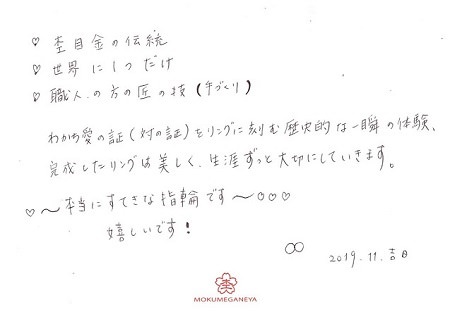 ♡ 杢目金の伝統
♡ 世界に1つだけ
♡ 職人の方の匠の技（手づくり）
わかち愛の証（対の証）をリングに刻む歴史的な一瞬の体験、
完成したリングは美しく、生涯ずっと大切にしていきます。
♡〜本当にすてきな指輪です〜♡♡♡
嬉しいです！
2019.11.吉日
杢
MOKUMEGANEYA